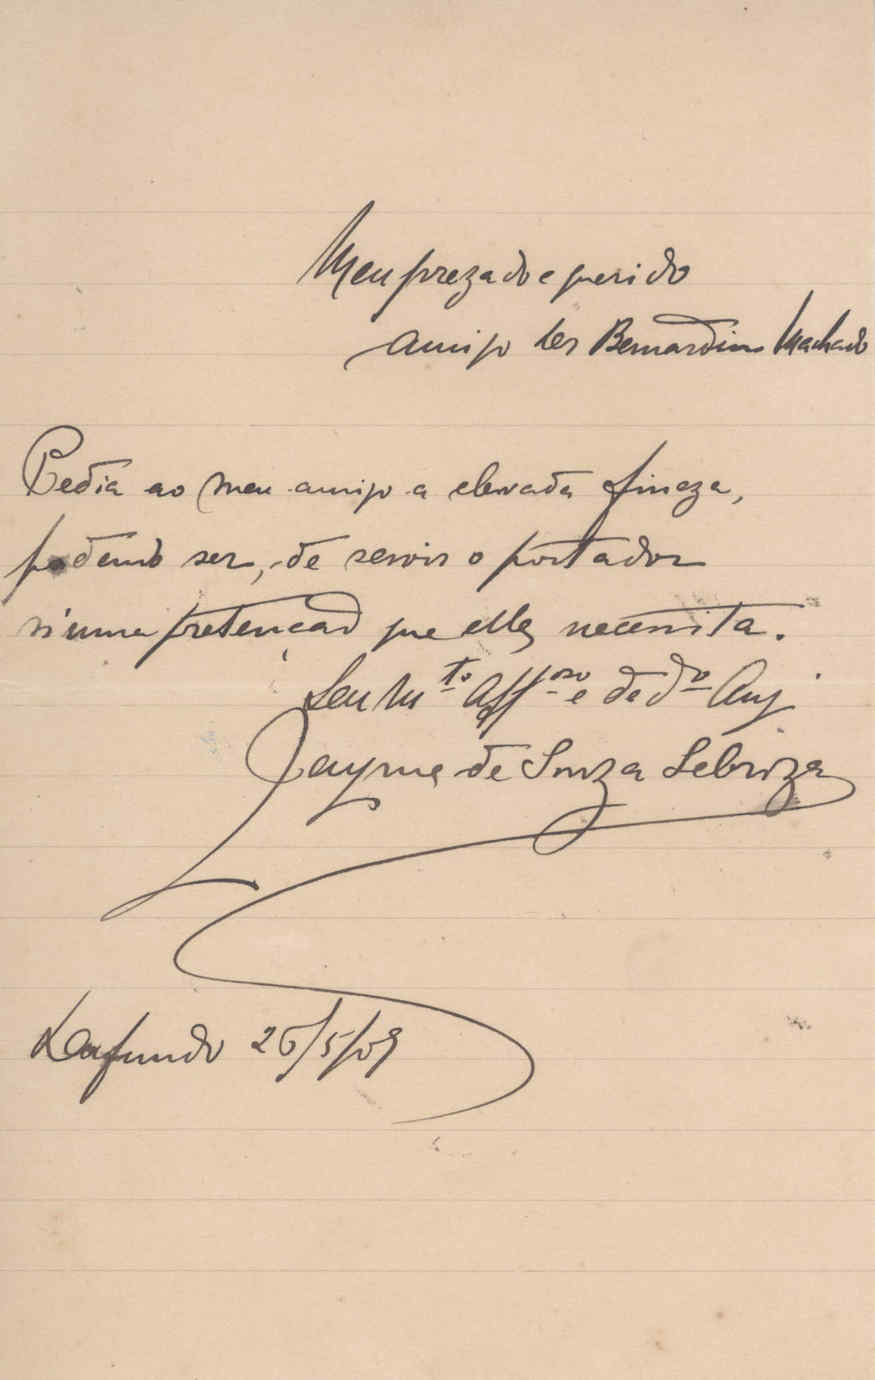 Meu prezado e querido
amigo Snr Bernardino Machado
Pedia ao meu amigo a elevada fineza,
podendo ser, de servir o portador
n'uma pretenção que elle necessita.
Seu M.to Aff.oso e ded.o Am.
Jayme de Souza Sebroza
Dafundo 26/5/09